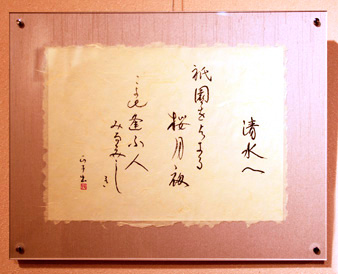 清水へ
祇園をよぎる
桜月夜
こよひ逢ふ人
みなうつくしき